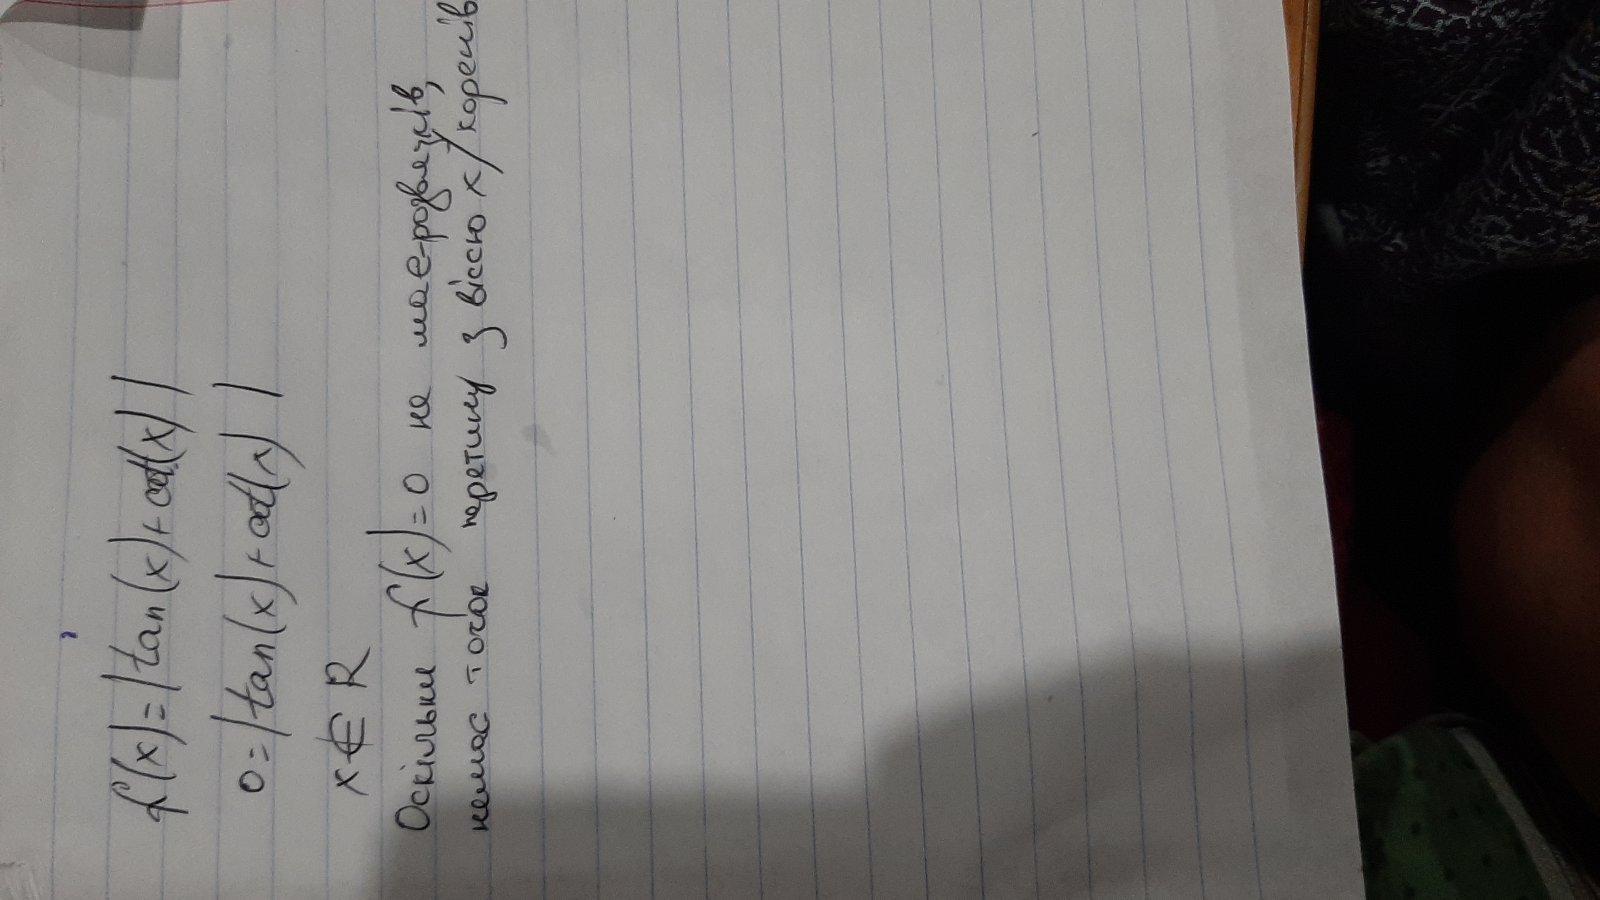 f(x)=|tan(x)+cot(x)|
0=|tan(x)+cot(x)|
x∉R
Оскільки f(x)=0 не має розв'язків,
немає точок перетину з віссю x/коренів